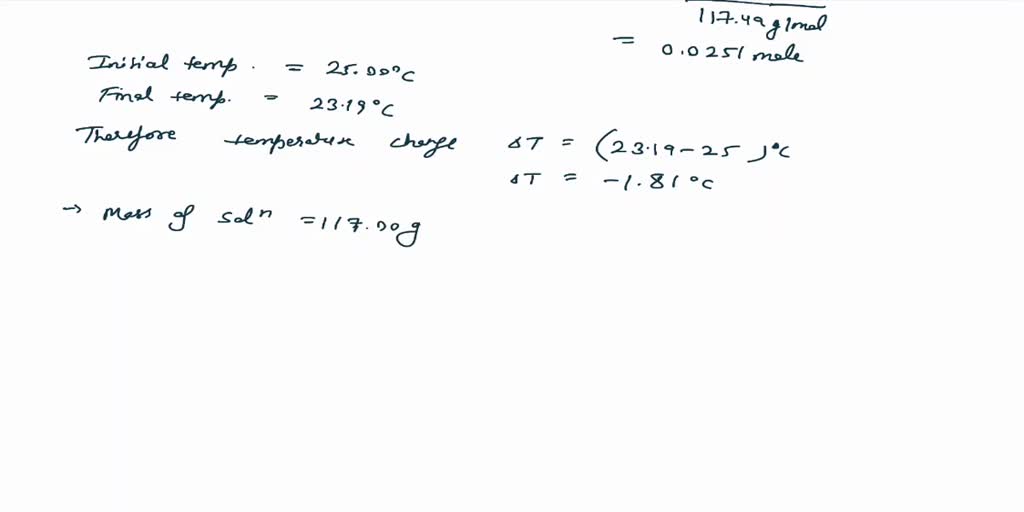 117.49 g/mol
= 0.0251 mole
Initial temp. = 25.00°C
Final temp. = 23.19°C
Therefore temperature change ΔT = (23.19-25)°C
ΔT = -1.81°C
→ Mass of solⁿ = 117.00g